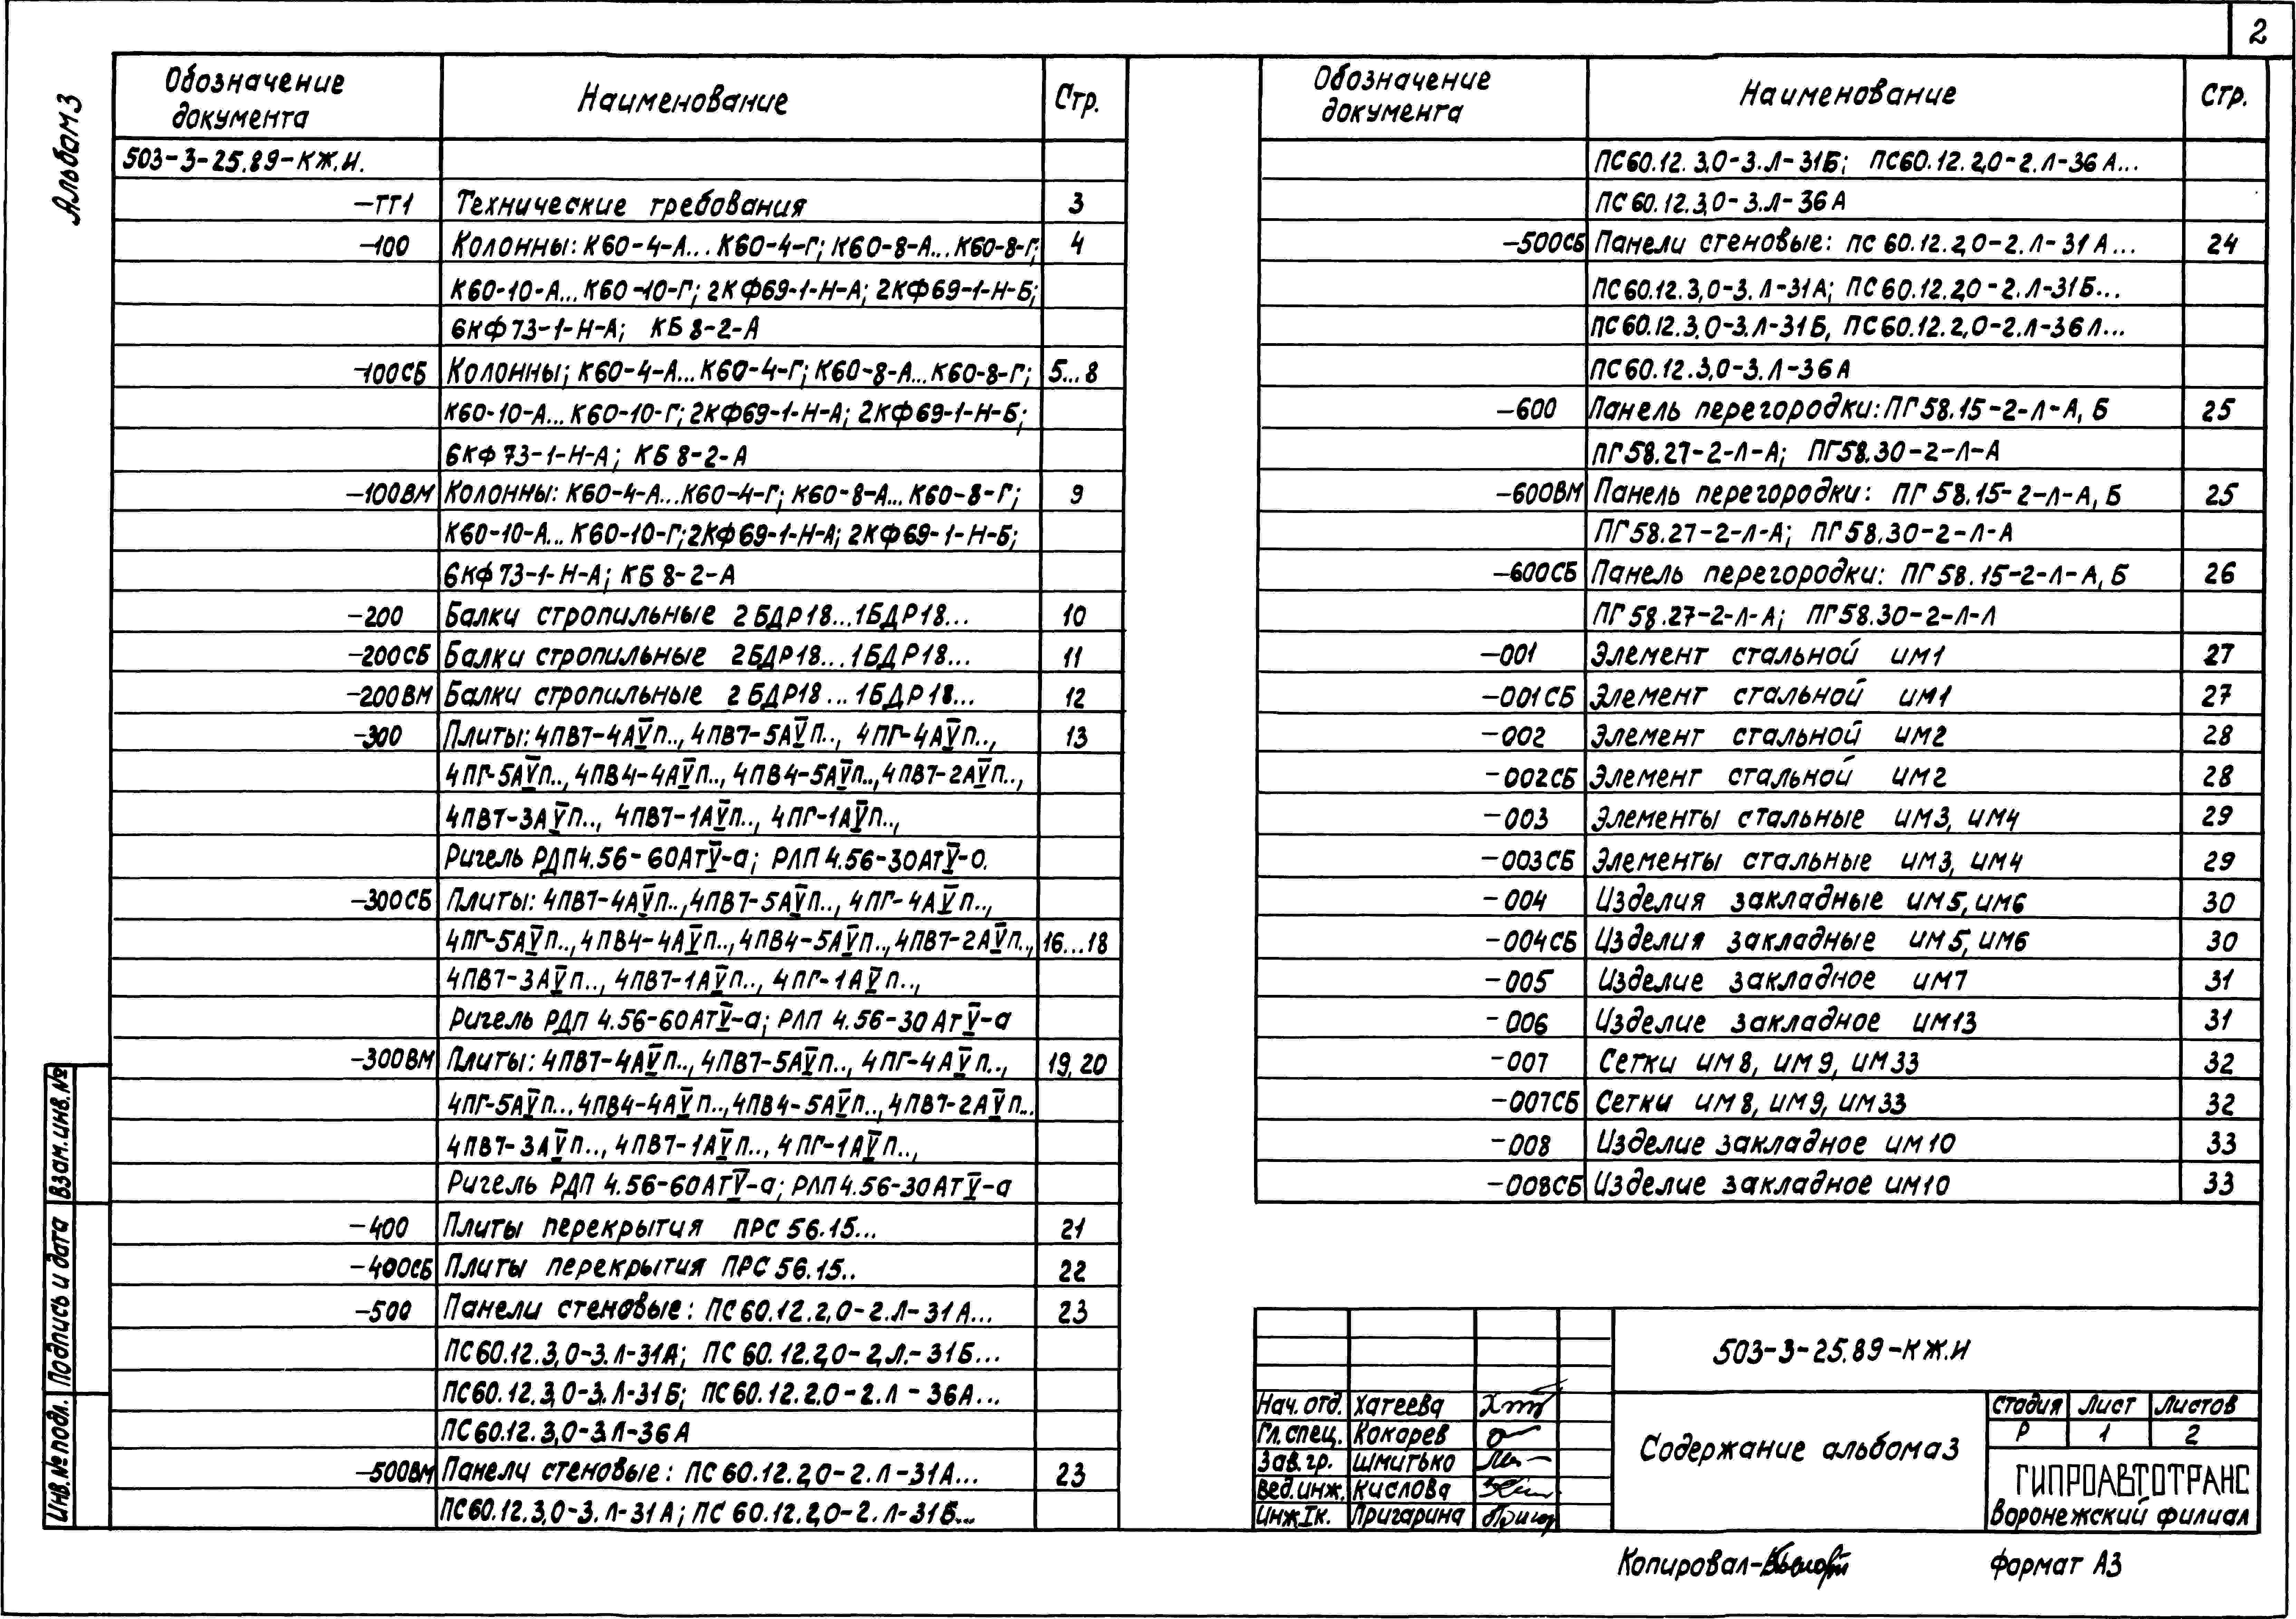 2
Альбом 3
Обозначение документа Наименование Стр.
503-3-25.89-КЖ.И.
-ТТ1 Технические требования 3
-100 Колонны: К60-4-А...К60-4-Г; К60-8-А...К60-8-Г; 4
К60-10-А...К60-10-Г; 2КФ69-1-Н-А; 2КФ69-1-Н-Б;
6КФ73-1-Н-А; КБ8-2-А
-100СБ Колонны; К60-4-А...К60-4-Г; К60-8-А...К60-8-Г; 5...8
К60-10-А...К60-10-Г; 2КФ69-1-Н-А; 2КФ69-1-Н-Б;
6КФ73-1-Н-А; КБ8-2-А
-100ВМ Колонны: К60-4-А...К60-4-Г; К60-8-А...К60-8-Г; 9
К60-10-А...К60-10-Г; 2КФ69-1-Н-А; 2КФ69-1-Н-Б;
6КФ73-1-Н-А; КБ8-2-А
-200 Балки стропильные 2БДР18...1БДР18... 10
-200СБ Балки стропильные 2БДР18...1БДР18... 11
-200ВМ Балки стропильные 2БДР18...1БДР18... 12
-300 Плиты: 4ПВ7-4АV̅п.., 4ПВ7-5АV̅п.., 4ПГ-4АV̅п.., 13
4ПГ-5АV̅п.., 4ПВ4-4АV̅п.., 4ПВ4-5АV̅п.., 4ПВ7-2АV̅п..,
4ПВ7-3АV̅п.., 4ПВ7-1АV̅п.., 4ПГ-1АV̅п..,
Ригель РДП4.56-60АтV̅-а; РЛП4.56-30АтV̅-а.
-300СБ Плиты: 4ПВ7-4АV̅п.., 4ПВ7-5АV̅п.., 4ПГ-4АV̅п..,
4ПГ-5АV̅п.., 4ПВ4-4АV̅п.., 4ПВ4-5АV̅п.., 4ПВ7-2АV̅п.., 16...18
4ПВ7-3АV̅п.., 4ПВ7-1АV̅п.., 4ПГ-1АV̅п..,
Ригель РДП 4.56-60АтV̅-а; РЛП 4.56-30АтV̅-а
-300ВМ Плиты: 4ПВ7-4АV̅п.., 4ПВ7-5АV̅п.., 4ПГ-4АV̅п.., 19, 20
4ПГ-5АV̅п.., 4ПВ4-4АV̅п.., 4ПВ4-5АV̅п.., 4ПВ7-2АV̅п..
4ПВ7-3АV̅п.., 4ПВ7-1АV̅п.., 4ПГ-1АV̅п..,
Ригель РДП 4.56-60АтV̅-а; РЛП4.56-30АтV̅-а
-400 Плиты перекрытия ПРС 56.15... 21
-400СБ Плиты перекрытия ПРС 56.15.. 22
-500 Панели стеновые: ПС60.12.2,0-2.Л-31А... 23
ПС60.12.3,0-3.Л-31А; ПС 60.12.2,0-2.Л.-31Б...
ПС60.12.3,0-3.Л-31Б; ПС60.12.2.0-2.Л-36А...
ПС60.12.3,0-3Л-36А
-500ВМ Панели стеновые: ПС60.12.2,0-2.Л-31А... 23
ПС60.12.3,0-3.Л-31А; ПС 60.12.2,0-2.Л-31Б...
Обозначение документа Наименование Стр.
ПС60.12.3,0-3.Л-31Б; ПС60.12.2,0-2.Л-36А...
ПС60.12.3,0-3.Л-36А
-500СБ Панели стеновые: ПС 60.12.2,0-2.Л-31А... 24
ПС60.12.3,0-3.Л-31А; ПС60.12.2,0-2.Л-31Б...
ПС60.12.3,0-3.Л-31Б, ПС60.12.2,0-2.Л-36Л...
ПС60.12.3,0-3.Л-36А
-600 Панель перегородки: ПГ58.15-2-Л-А, Б 25
ПГ58.27-2-Л-А; ПГ58.30-2-Л-А
-600ВМ Панель перегородки: ПГ58.15-2-Л-А, Б 25
ПГ58.27-2-Л-А; ПГ58.30-2-Л-А
-600СБ Панель перегородки: ПГ58.15-2-Л-А, Б 26
ПГ58.27-2-Л-А; ПГ58.30-2-Л-Л
-001 Элемент стальной им1 27
-001СБ Элемент стальной им1 27
-002 Элемент стальной им2 28
-002СБ Элемент стальной им2 28
-003 Элементы стальные им3, им4 29
-003СБ Элементы стальные им3, им4 29
-004 Изделия закладные им5, им6 30
-004СБ Изделия закладные им5, им6 30
-005 Изделие закладное им7 31
-006 Изделие закладное им13 31
-007 Сетки им8, им9, им33 32
-007СБ Сетки им8, им9, им33 32
-008 Изделие закладное им10 33
-008СБ Изделие закладное им10 33
Инв.№подл. Подпись и дата Взам.инв.№
503-3-25.89-КЖ.И
Нач.отд. Хатеева
Гл.спец. Кокарев
Зав.гр. Шмитько
Вед.инж. Кислова
Инж.Iк. Пригарина
Содержание альбома 3
Стадия Лист Листов
Р 1 2
ГИПРОАВТОТРАНС
Воронежский филиал
Копировал-
Формат А3